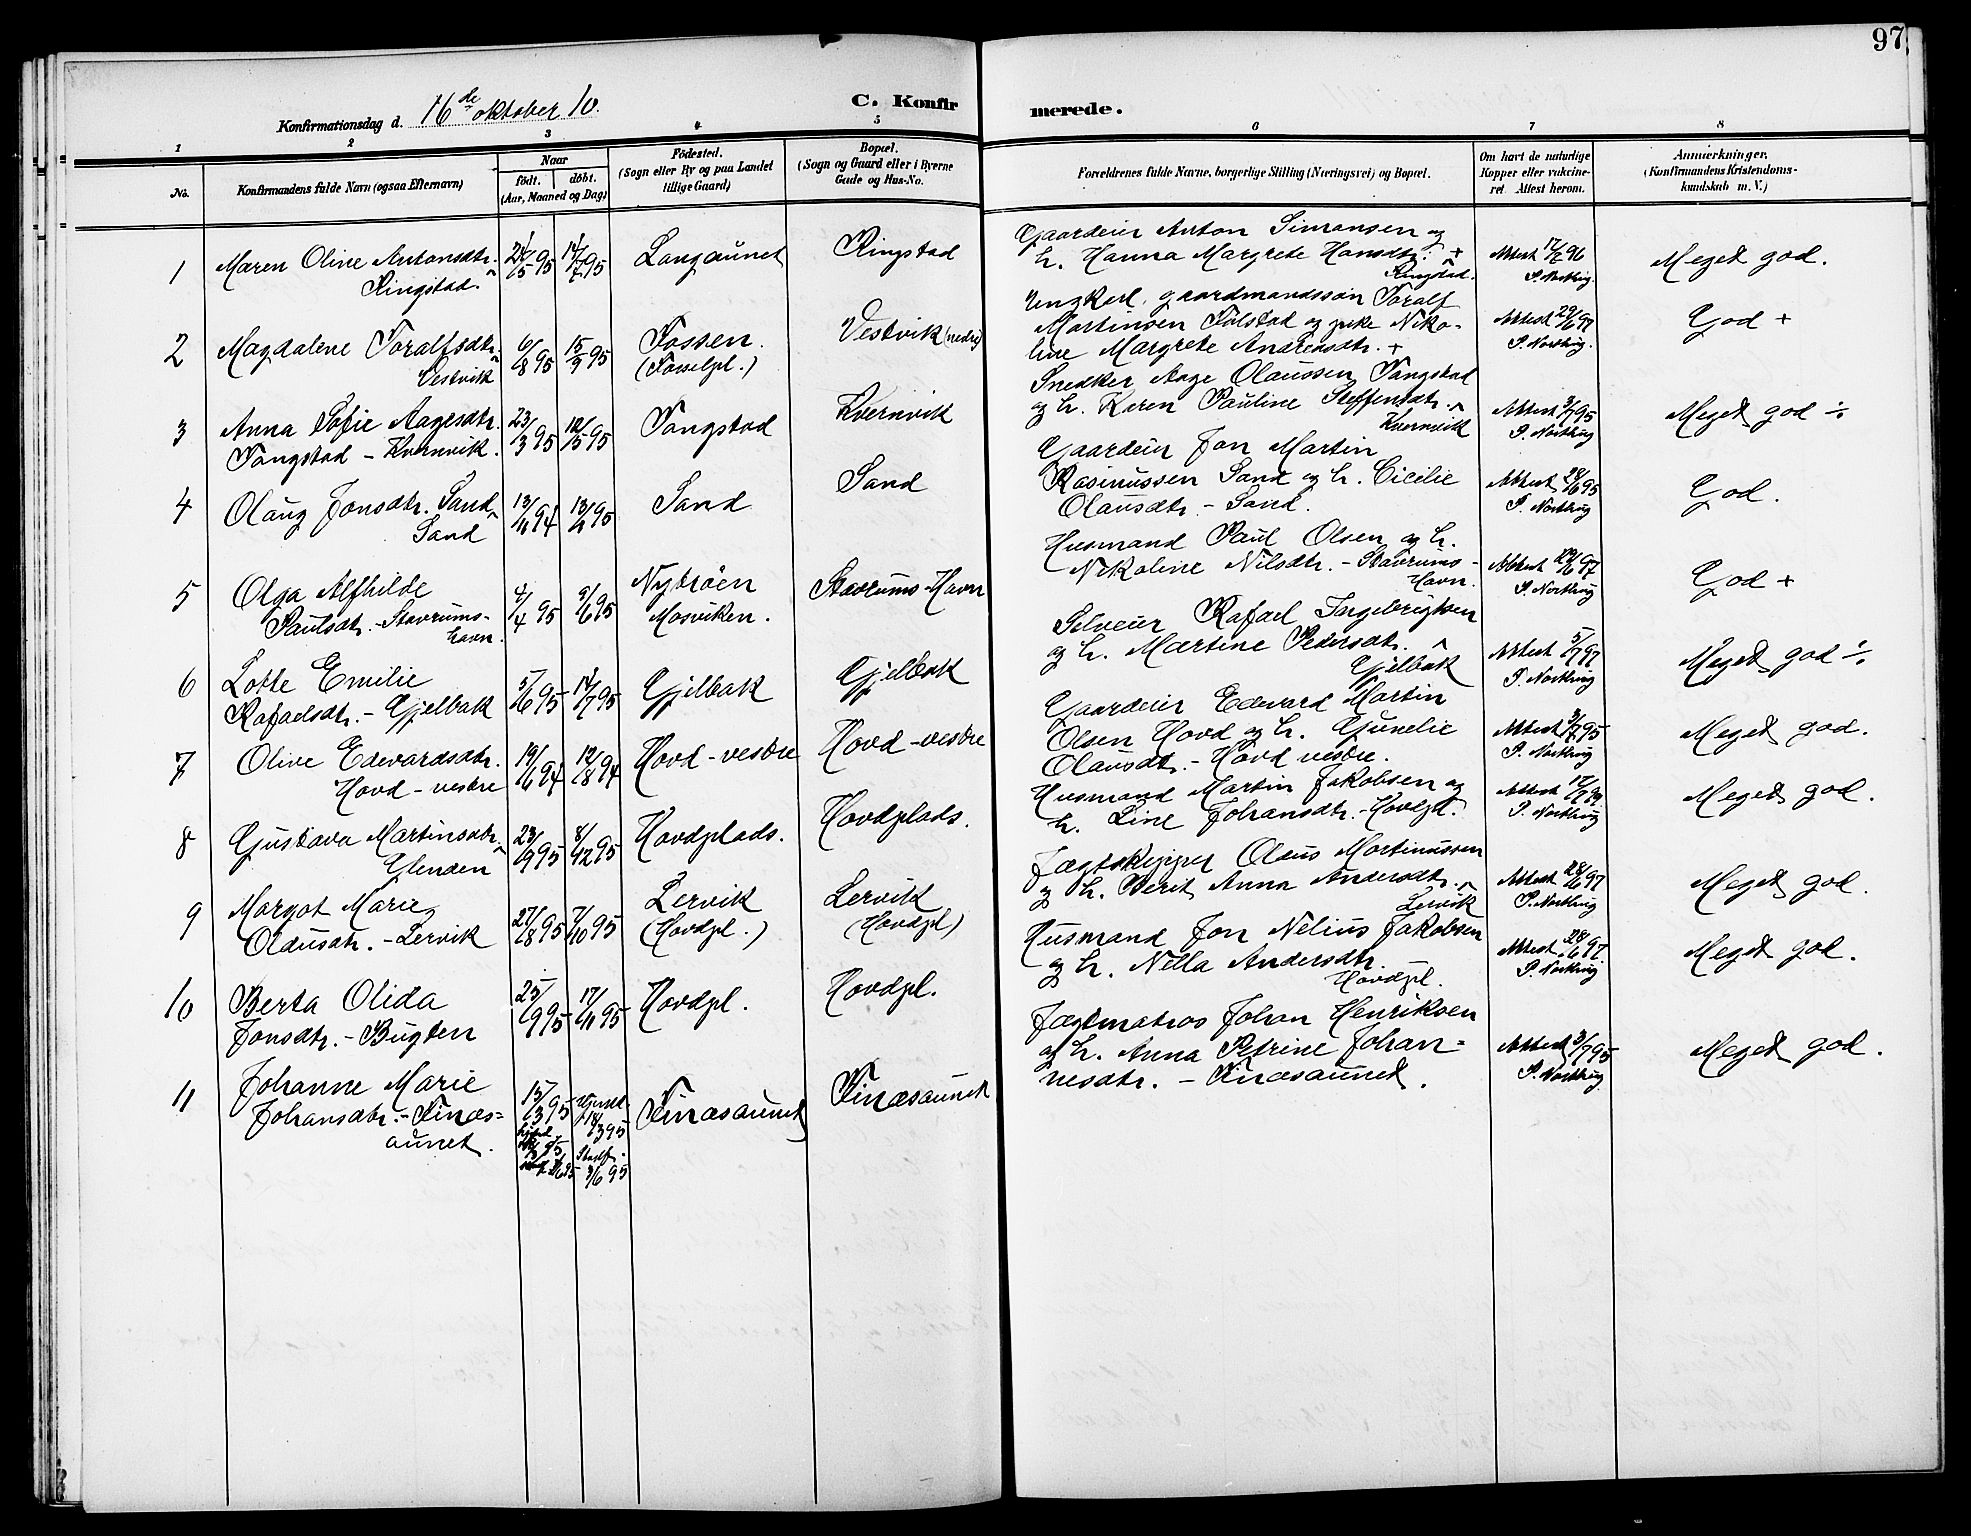 97
Konfirmationsdag d. 16de oktober 10.
C. Konfirmerede.
1 2 3 4 5 6 7 8
No.
Konfirmandens fulde Navn (ogsaa Efternavn)
Naar
födt. döbt.
(Aar, Maaned og Dag)
Födested.
(Sogn eller By og paa Landet
tillige Gaard)
Bopæl.
(Sogn og Gaard eller i Byerne
Gade og Hus-No.
Forældrenes fulde Navne, borgerlige Stilling (Næringsvei) og Bopæl.
Om havt de naturlige
Kopper eller vakcine-
ret. Attest herom.
Anmærkninger.
(Konfirmandens Kristendoms-
kundskab m. V.)
1 Maren Oline Antonsdtr.
Ringstad
21/5 95 14/7 95 Langaunet Ringstad
Gaardeier Anton Simonsen og
h. Hanna Margrete Hansdtr. +
Ringstad.
Attest 17/2 96
P. Norking.
Meget god.
2 Magdalene Toralfsdtr.
Vestvik
6/8 95 15/9 95 Fossen.
(Fosselpl.)
Vestvik (nedre)
Ungkarl, gaardmandssøn Toralf
Martinsen Folstad og pike Niko-
line Margrete Andreasdtr. +
Attest 29/6 97
P. Norking.
God +
3 Anna Sofie Aagesdtr.
Tangstad - Kvernvik.
23/3 95 12/5 95 Tangstad Kvernvik
Snedker Aage Olaussen Tangstad
og h. Karen Pauline Steffensdtr.
Kvernvik
Attest 3/7 95
P. Norking
Meget god ÷
4 Olaug Jonsdtr. Sand
Sand
13/11 94 13/1 95 Sand Sand
Gaardeier Jon Martin
Rasmussen Sand og h. Cicilie
Olausdtr. - Sand.
Attest 28/6 95
P. Norking
God.
5 Olga Alfhilde
Paulsdtr. - Stavrums-
havn.
4/4 95 5/6 95 Nytrøen
Mosviken.
Stavrums-Havn
Husmand Paul Olsen og h.
Nikoline Nilsdtr. - Stavrums-
Havn.
Attest 97
P. Norking
God +
6 Lotte Emilie
Rafaelsdtr. - Gjelbak
5/6 95 14/7 95 Gjelbak Gjelbak
Selveier Rafael Ingebrigtsen
og h. Martine Pedersdtr.
Gjelbak
Attest 5/7 97
P. Norking
Meget god ÷
7 Oline Edevardsdtr.
Hovd - vestre
19/6 94 12/8 94 Hovd - vestre Hovd - vestre
Gaardeier Edevard Martin
Olsen Hovd og h. Gunelie
Olausdtr. - Hovd vestre.
Attest 3/7 95
P. Norking
Meget god.
8 Gustava Martinsdtr.
Glenden
23/9 95 8/12 95 Hovdplads. Hovdplads.
Husmand Martin Jakobsen og
h. Line Johansdtr. - Hovdpl.
Attest
P. Norking
Meget god.
9 Margot Marie
Olausdtr. - Lervik
27/8 95 7/10 95 Lervik
(Hovdpl.)
Lervik
(Hovdpl)
Jægtskipper Olaus Martinussen
og h. Berit Anna Andersdtr.
Lervik
Attest 28/6 97
P. Norking
Meget god.
10 Berta Olida
Jonsdtr. - Bugten
25/9 95 17/11 95 Hovdpl. Hovdpl.
Husmand Jon Nelius Jakobsen
og h. Nella Andersdtr.
Hovdpl.
Attest 28/6 97.
P. Norking
Meget god.
11 Johanne Marie
Johansdtr. - Finæs-
aunet.
15/3 95 Stadf. 3/6 95
Finæsaunet Finæsaunet
Jægtmatros Johan Henriksen
og h. Anna Petrine Johan-
nesdtr. - Finæsaunet.
Attest 3/7 95
P. Norking.
Meget god.